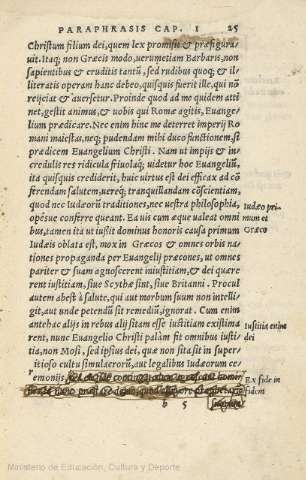 PARAPHRASIS CAP. I 25
Christum filium dei, quem lex promisit & præfigura/
uit. Itaq; non Græcis modo, uerumetiam Barbaris, non
sapientibus & eruditis tantũ, sed rudibus quoq; & il/
literatis operam hanc debeo, quisquis fuerit ille, qui nõ
reijciat & auersetur. Proinde quod ad me quidem atti
net, gestit animus, & uobis qui Romæ agitis, Euange/
lium prædicare. Nec enim hinc me deterret imperij Ro
mani maiestas, neq; pudendam mihi duco functionem, si
prædicem Euangelium Christi. Nam ut impijs & in=
credulis res ridicula friuolaq; uidetur hoc Euangeliũ,
ita quisquis crediderit, huic uirtus est dei efficax ad cõ
ferendam salutem, uereq; tranquillandam cõscientiam,
quod nec Iudæorũ traditiones, nec uestra philosophia,
opésue conferre queant. Ea uis cum æque ualeat omni
bus, tamen ita ut iussit dominus honoris causa primum
Iudæis oblata est, mox in Græcos & omnes orbis na/
tiones propaganda per Euangelij præcones, ut omnes
pariter & suam agnoscerent iniustitiam, & dei quære
rent iustitiam, siue Scythæ sint, siue Britanni. Procul
autem abest à salute, qui aut morbum suum non intelli/
git, aut unde petendũ sit remediũ, ignorat. Cum enim
antehac alijs in rebus alij sitam esse iustitiam existima
rent, nunc Euangelio Christi palàm fit omnibus iusti/
tia, non Mosi, sed ipsius dei, quæ non sita sit in super/
stitioso cultu simulacrorũ, aut legalibus Iudæorum ce
remonijs,
b 5
Iudæo pri=
mum et
Græco
Iustitia enim
dei
Ex fide in
fidem
Ministerio de Educación, Cultura y Deporte